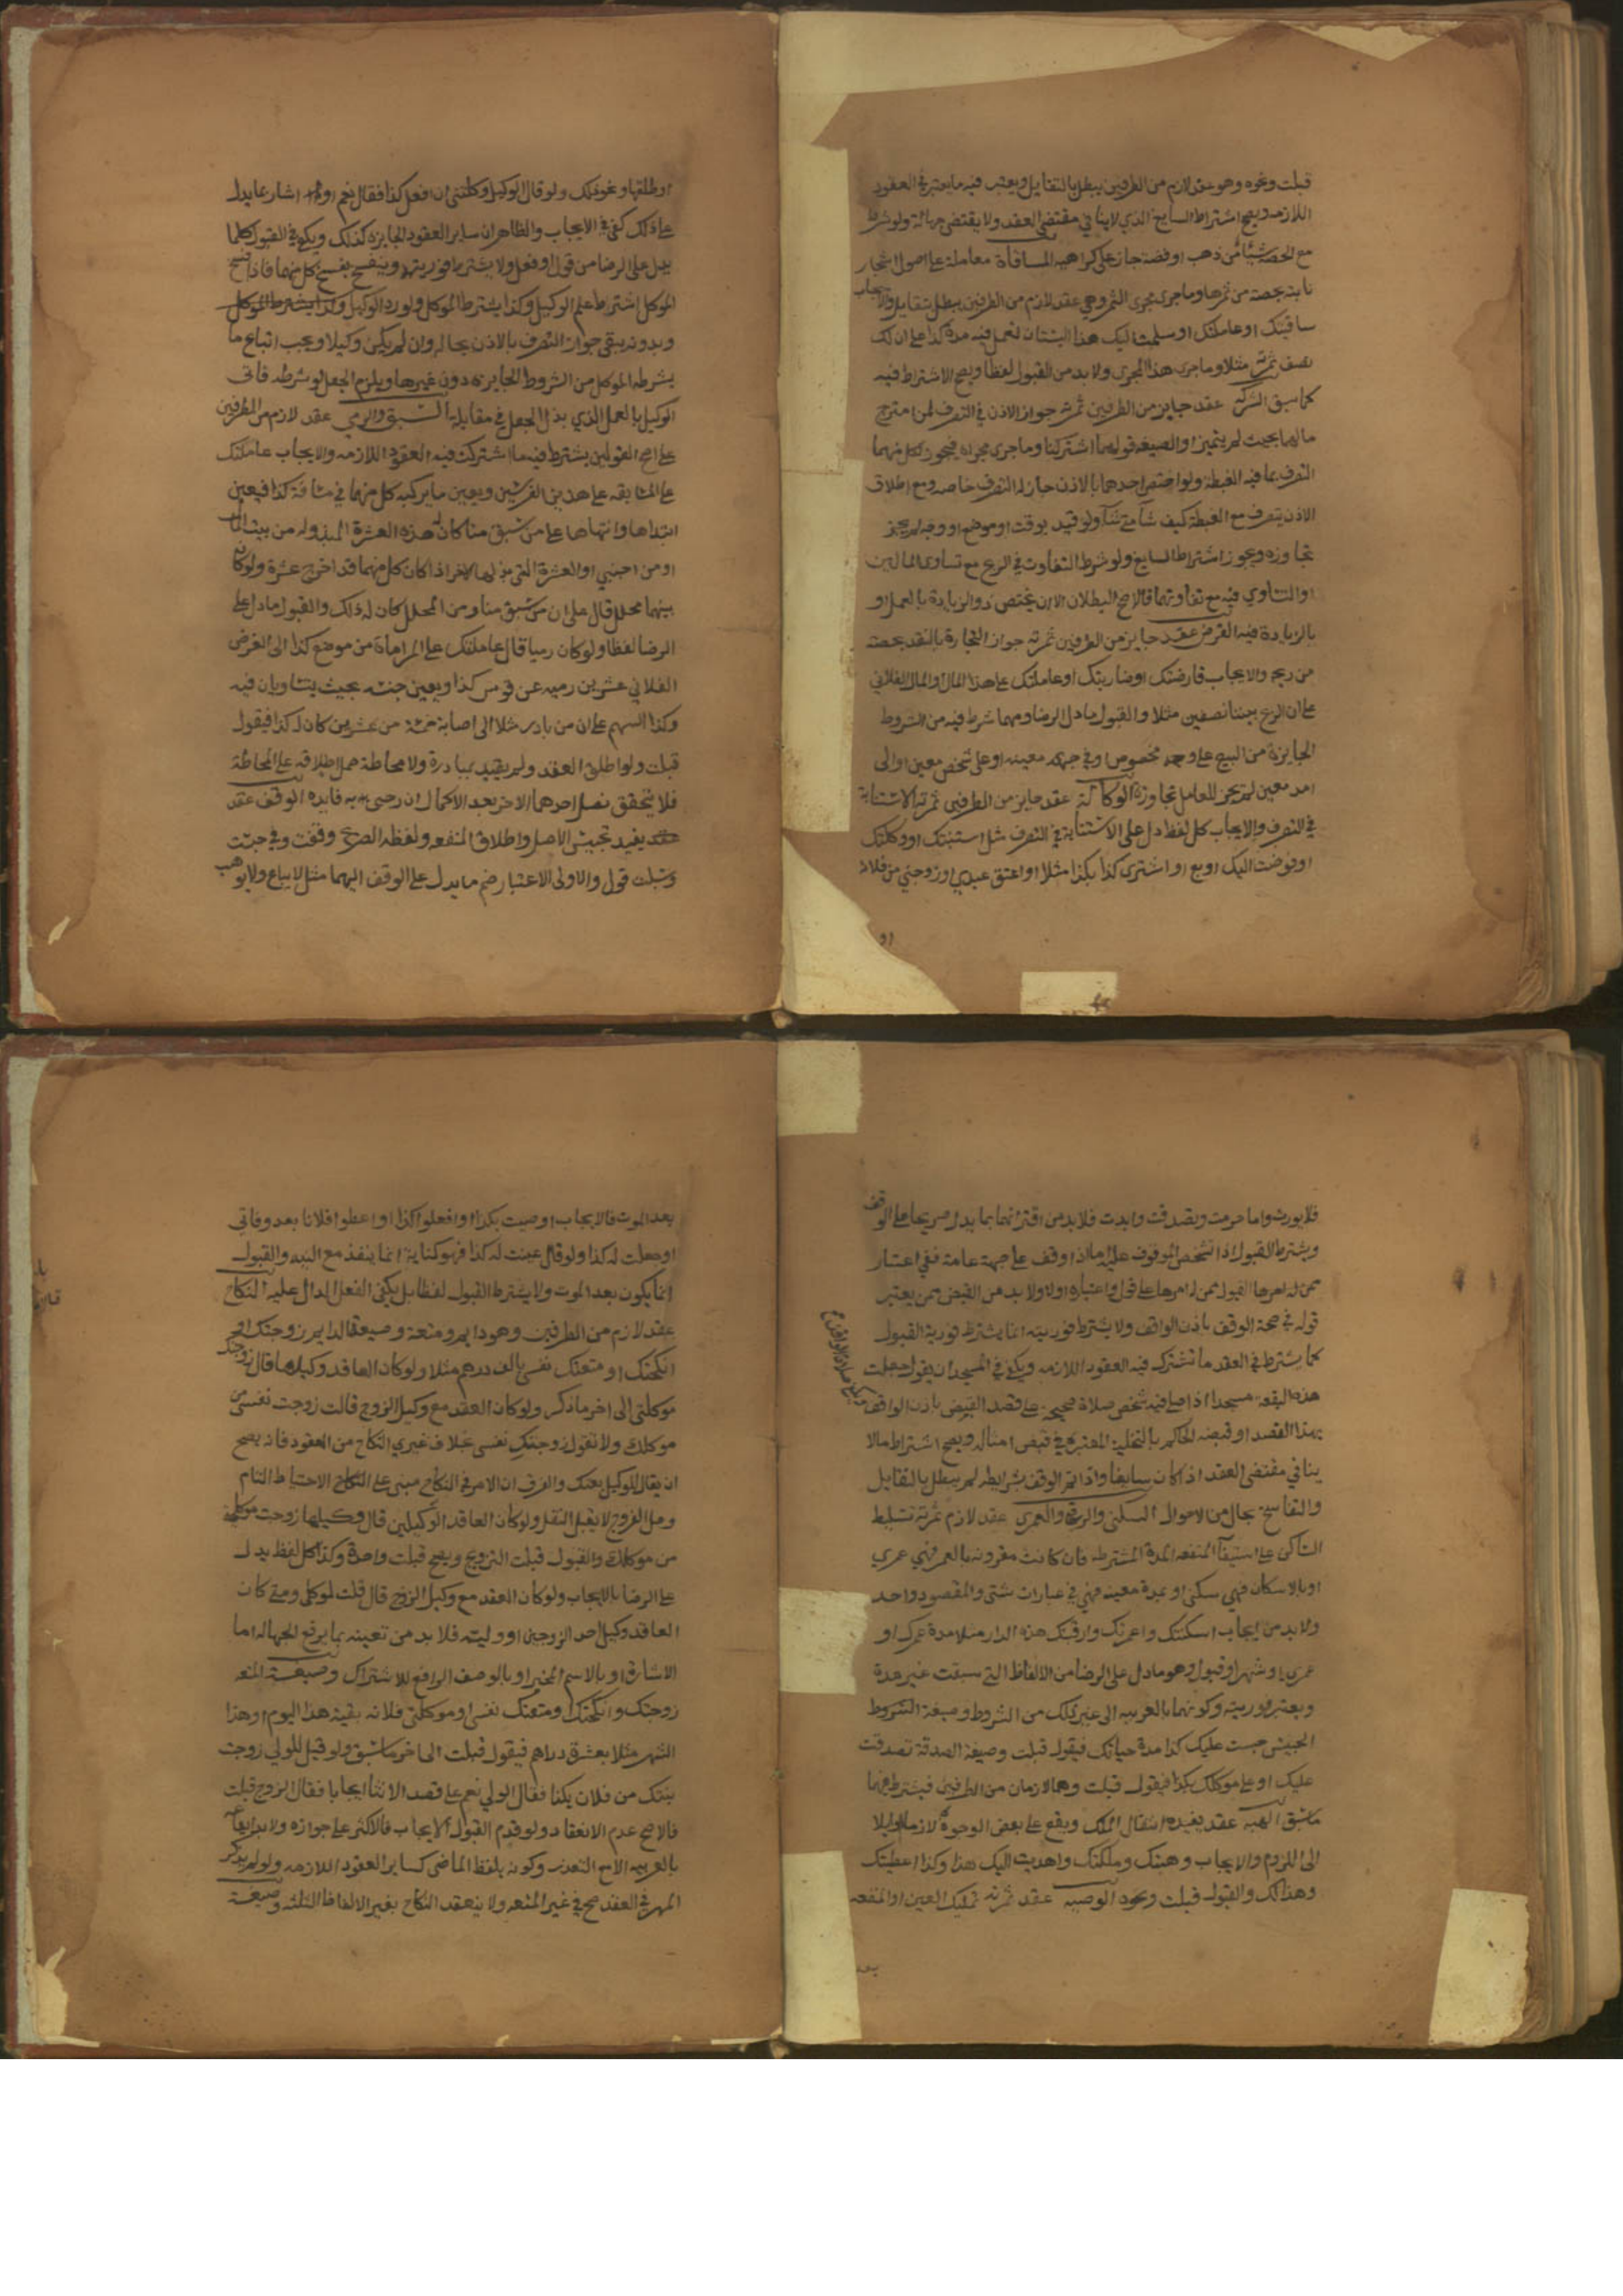 قبلت ونحوه وهو عقد لازم من الطرفين يبطل بالتقايل ويعتبر فيه ما يعتبر في العقود
اللازمه ويصح اشتراط السايغ الذي لا ينافي مقتضى العقد ولا يقتضي جهالة ولو شرط
مع الحصة شيئا من ذهب او فضة جاز على كراهيه المساقاة معاملة على اصول اشجار
ثابتة بحصة من ثمرها وما جرى مجرى الثمر وهي عقد لازم من الطرفين يبطل بتقايل والايجاب
ساقيتك او عاملتك او سلمت اليك هذا البستان لتعمل فيه مدة كذا على ان لك
نصف ثمرته مثلا وما جرى هذا المجرى ولا بد من القبول لفظا ويصح الاشتراط فيه
كما سبق الشركه عقد جايز من الطرفين ثمرته جواز الاذن في التصرف لمن امتزج
مالهما بحيث لم يتميز او الصيغه قولهما اشتركنا وما جرى مجراه فيجوز لكل منهما
التصرف بما فيه الغبطة ولو اختص احدهما بالاذن جاز له التصرف خاصه ومع اطلاق
الاذن يتصرف مع الغبطة كيف شاء متى شاء ولو قيد بوقت او موضع او وجه لم يجز
تجاوزه ويجوز اشتراط السايغ ولو شرط التفاوت في الربح مع تساوى المالين
او التساوي فيه مع تفاوتهما فالاصح البطلان الا ان يختص ذو الزيادة بالعمل او
بالزيادة فيه القرض عقد جايز من الطرفين ثمرته جواز التجارة بالنقد بحصة
من ربحه والايجاب قارضتك او ضاربتك او عاملتك على هذا المال او المال الفلاني
على ان الربح بيننا نصفين مثلا والقبول ما دل الرضا ومهما شرط فيه من الشروط
الجايزة من البيع على وجه مخصوص او في جهه معينه او على شخص معين او الى
امد معين لم يجز للعامل تجاوزه الوكالة عقد جايز من الطرفين ثمرته الاستنابة
في التصرف والايجاب كل لفظ دل على الاستنابة في التصرف مثل استنبتك او وكلتك
او فوضت اليك او بع او اشترى كذا بكذا مثلا او اعتق عبدي او زوجني من فلانه
او
او طلقها ونحو ذلك ولو قال الوكيل وكلتني ان افعل كذا فقال نعم او اشار بما يدل
على ذلك كفى في الايجاب والظاهر ان ساير العقود الجايزه كذلك ويكفي في القبول كلما
يدل على الرضا من قول او فعل ولا يشترط فوريته وينفسخ بفسخ كل منهما فاذا فسخ
الموكل اشترط علم الوكيل وكذا يشترط الموكل ولو رد الوكيل وكذا يشترط الموكل
وبدونه يبقى جواز التصرف بالاذن بحاله وان لم يكن وكيلا ويجب اتباع ما
يشرطه الموكل من الشروط الجايزه دون غيرها ويلزم الجعل لو شرطه فاتى
الوكيل بالعمل الذي بذل الجعل في مقابله السبق والرمي عقد لازم من الطرفين
على اصح القولين يشترط فيه ما اشتركت فيه العقود اللازمه والايجاب عاملتك
على المسابقه على هذين الفرسين ويعين ما يركبه كل منهما في مسافة كذا فيعين
ابتداها وانتهاها على من سبق منا كان له هذه العشرة المبذوله من بيت المال
او من اجنبي او العشرة التي بذلها الاخر اذا كان كل منهما قد اخرج عشرة ولو كان
بينهما محلل قال على ان من سبق منا ومن المحلل كان له ذلك والقبول ما دل على
الرضا لفظا ولو كان رميا قال عاملتك على المراماة من موضع كذا الى الغرض
الفلاني عشرين رميه عن قوس كذا ويعين جنسه بحيث يتساويان فيه
وكذا السهم على ان من بادر مثلا الى اصابة خمسة من عشرين كان له كذا فيقول
قبلت ولو اطلق العقد ولم يقيد بمبادرة ولا محاطة حمل اطلاقه على المحاطة
فلا يتحقق نضل احدهما الاخر بعد الاكمال ان رجى به فايده الوقف عقد
يفيد تحبيس الاصل واطلاق المنفعه ولفظه الصريح وقفت وفي حبست
وسبلت قول والاولى الاعتبار ضم ما يدل على الوقف اليهما مثل لا يباع ولا يوهب
فلا يورث واما حرمت وتصدقت وابدت فلا بد من اقترانها بما يدل صريحا على الوقف
ويشترط القبول اذا تشخص الموقوف عليه اما اذا وقف على جهة عامة ففي اعتبار
ممن له امرها القبول ممن له امرها على قول واعتباره اولا ولا بد من القبض ممن يعتبر
قوله في صحة الوقف باذن الواقف ولا يشترط فوريته انما يشترط فورية القبول
كما يشترط في العقد ما تشترك فيه العقود اللازمه ويكفي في المسجد ان يقول جعلت
هذه البقعه مسجدا اذا صلى فيه شخص صلاة صحيحة على قصد القبض باذن الواقف
بهذا القصد او قبضه الحاكم بالتخلية المعتبرة في قبض امثاله ويصح اشتراط ما لا
ينافي مقتضى العقد اذا كان سايغا واذا تم الوقف بشرايطه لم يبطل بالتقايل
والتفاسخ بحال من الاحوال السكنى والرقبى والعمرى عقد لازم ثمرته تسليط
الساكن على استيفاء المنفعه المدة المشترطه فان كانت مقرونه بالعمر فهي عمرى
او بالاسكان فهي سكنى او بمدة معينه فهي في عبارات شتى والمقصود واحد
ولا بد من ايجاب اسكنتك واعمرتك وارقبتك هذه الدار مثلا مدة عمرك او
عمري او شهرا وقبول وهو ما دل على الرضا من الالفاظ التي سبقت غير مدة
ويعتبر فوريته وكونهما بالعربيه الى غير ذلك من الشروط وصيغة الشروط
الحبيس حبست عليك كذا مدة حياتك فيقول قبلت وصيغة الصدقة تصدقت
عليك او على موكلك بكذا فيقول قبلت وهما لازمان من الطرفين فيشترط فيهما
ما سبق الهبه عقد يفيد انتقال الملك ويقع على بعض الوجوه لازما وايلا
الى اللزوم والايجاب وهبتك وملكتك واهديت اليك هذا وكذا اعطيتك
وهذا لك والقبول قبلت ونحوه الوصيه عقد ثمرته تمليك العين او المنفعه
بعد
بعد الموت فالايجاب اوصيت بكذا او افعلوا كذا او اعطوا فلانا بعد وفاتي
او جعلت له كذا ولو قال عينت له كذا فهو كناية انما ينفذ مع النيه والقبول
انما يكون بعد الموت ولا يشترط القبول لفظا بل يكفي الفعل الدال عليه النكاح
عقد لازم من الطرفين وهو دايم ومتعة وصيغة الدايم زوجتك او
انكحتك او متعتك نفسي بالف درهم مثلا ولو كان العاقد وكيلها قال زوجتك
موكلتي الى اخر ما ذكر ولو كان العقد مع وكيل الزوج قالت زوجت نفسي من
موكلك ولا تقول زوجتك نفسي بخلاف غيري النكاح من العقود فانه يصح
ان يقال للوكيل بعتك والفرق ان الامر في النكاح مبني على النكاح الاحتياط التام
وحل الفروج لا يقبل النقل ولو كان العاقد الوكيلين قال وكيلها زوجت موكلتي
من موكلك والقبول قبلت التزويج ويصح قبلت واحدة وكذا كل لفظ يدل
على الرضا بالايجاب ولو كان العقد مع وكيل الزوج قال قبلت لموكلي ومتى كان
العاقد وكيل احد الزوجين او وليته فلا بد من تعيينه بما يرفع الجهاله اما
الاشارة او بالاسم المميز او بالوصف الرافع للاشتراك وصيغة المتعه
زوجتك وانكحتك ومتعتك نفسي او موكلتي فلانه بقية هذا اليوم او هذا
الشهر مثلا بعشرة دراهم فيقول قبلت الى اخر ما سبق ولو قيل للولي زوجت
بنتك من فلان بكذا فقال الولي نعم على قصد الانشا ايجابا فقال الزوج قبلت
فالاصح عدم الانعقاد ولو قدم القبول الايجاب فالاكثر على جوازه ولا بد ايقاعه
بالعربيه الا مع التعذر وكونه بلفظ الماضي كساير العقود اللازمه ولو لم يذكر
المهر في العقد صح في غير المتعه ولا ينعقد النكاح بغير الالفاظ الثلثه وصيغة